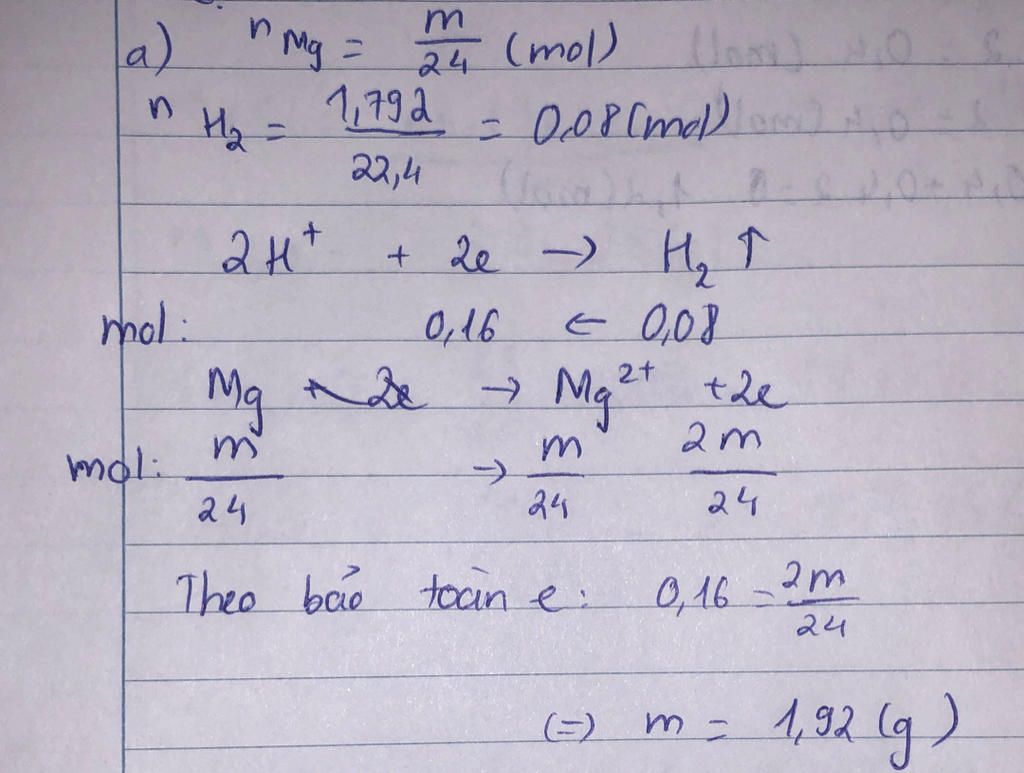 a) n Mg = m/24 (mol)
n H₂ = 1,792/22,4 = 0,08 (mol)
2H⁺ + 2e → H₂ ↑
mol: 0,16 ← 0,08
Mg → Mg²⁺ + 2e
mol: m/24 → m/24 2m/24
Theo bảo toàn e: 0,16 = 2m/24
(=) m = 1,92 (g)